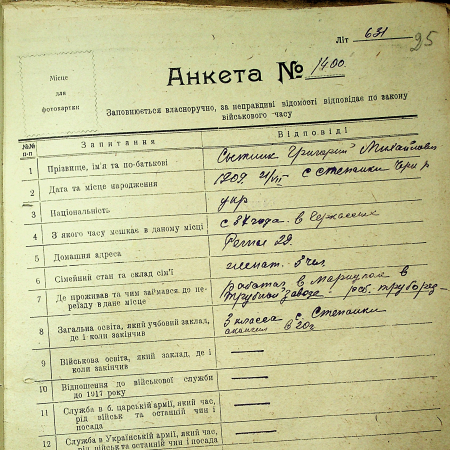 Літ 631
25
Місце
для
фотокартки
Анкета № 1400
Заповнюється власноручно, за неправдиві відомості відповідає по закону
військового часу
№№ п-п
Запитання
Відповіді
1 Прізвище, ім'я та по-батькові
Сытник Григорий Михайлович
2 Дата та місце народження
1909 с Степанки
3 Національність
укр
4 З якого часу мешкає в даному місці
с года. в Черкассах
5 Домашня адреса
29.
6 Сімейний стан та склад сім'ї
женат. 3 чел
7 Де проживав та чим займався до пе-
реїзду в дане місце
работал в Мариуполе в
Трубном заводе.
8 Загальна освіта, який учбовий заклад,
де і-коли закінчив
3 класса с. Степанки
в 20г
9 Військова освіта, який заклад, де і
коли закінчив
—
10 Відношення до військової служби
до 1917 року
—
11 Служба в б. царській армії, який час,
рід військ та останній чин і
посада
—
12 Служба в Українській армії, який час,
рід військ та останній чин і посада
—